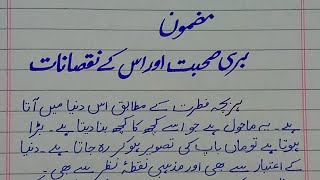 مضمون
بری صحبت اور اس کے نقصانات
ہر بچہ فطرت کے مطابق اس دنیا میں آتا
ہے۔ یہ ماحول ہے جو اسے کچھ کا کچھ بنا دیتا ہے۔ بڑا
ہوتا ہے تو ماں باپ کی تصویر ہو کر رہ جاتا ہے۔ دنیا
کے اعتبار سے بھی اور مذہبی نقطۂ نظر سے بھی۔